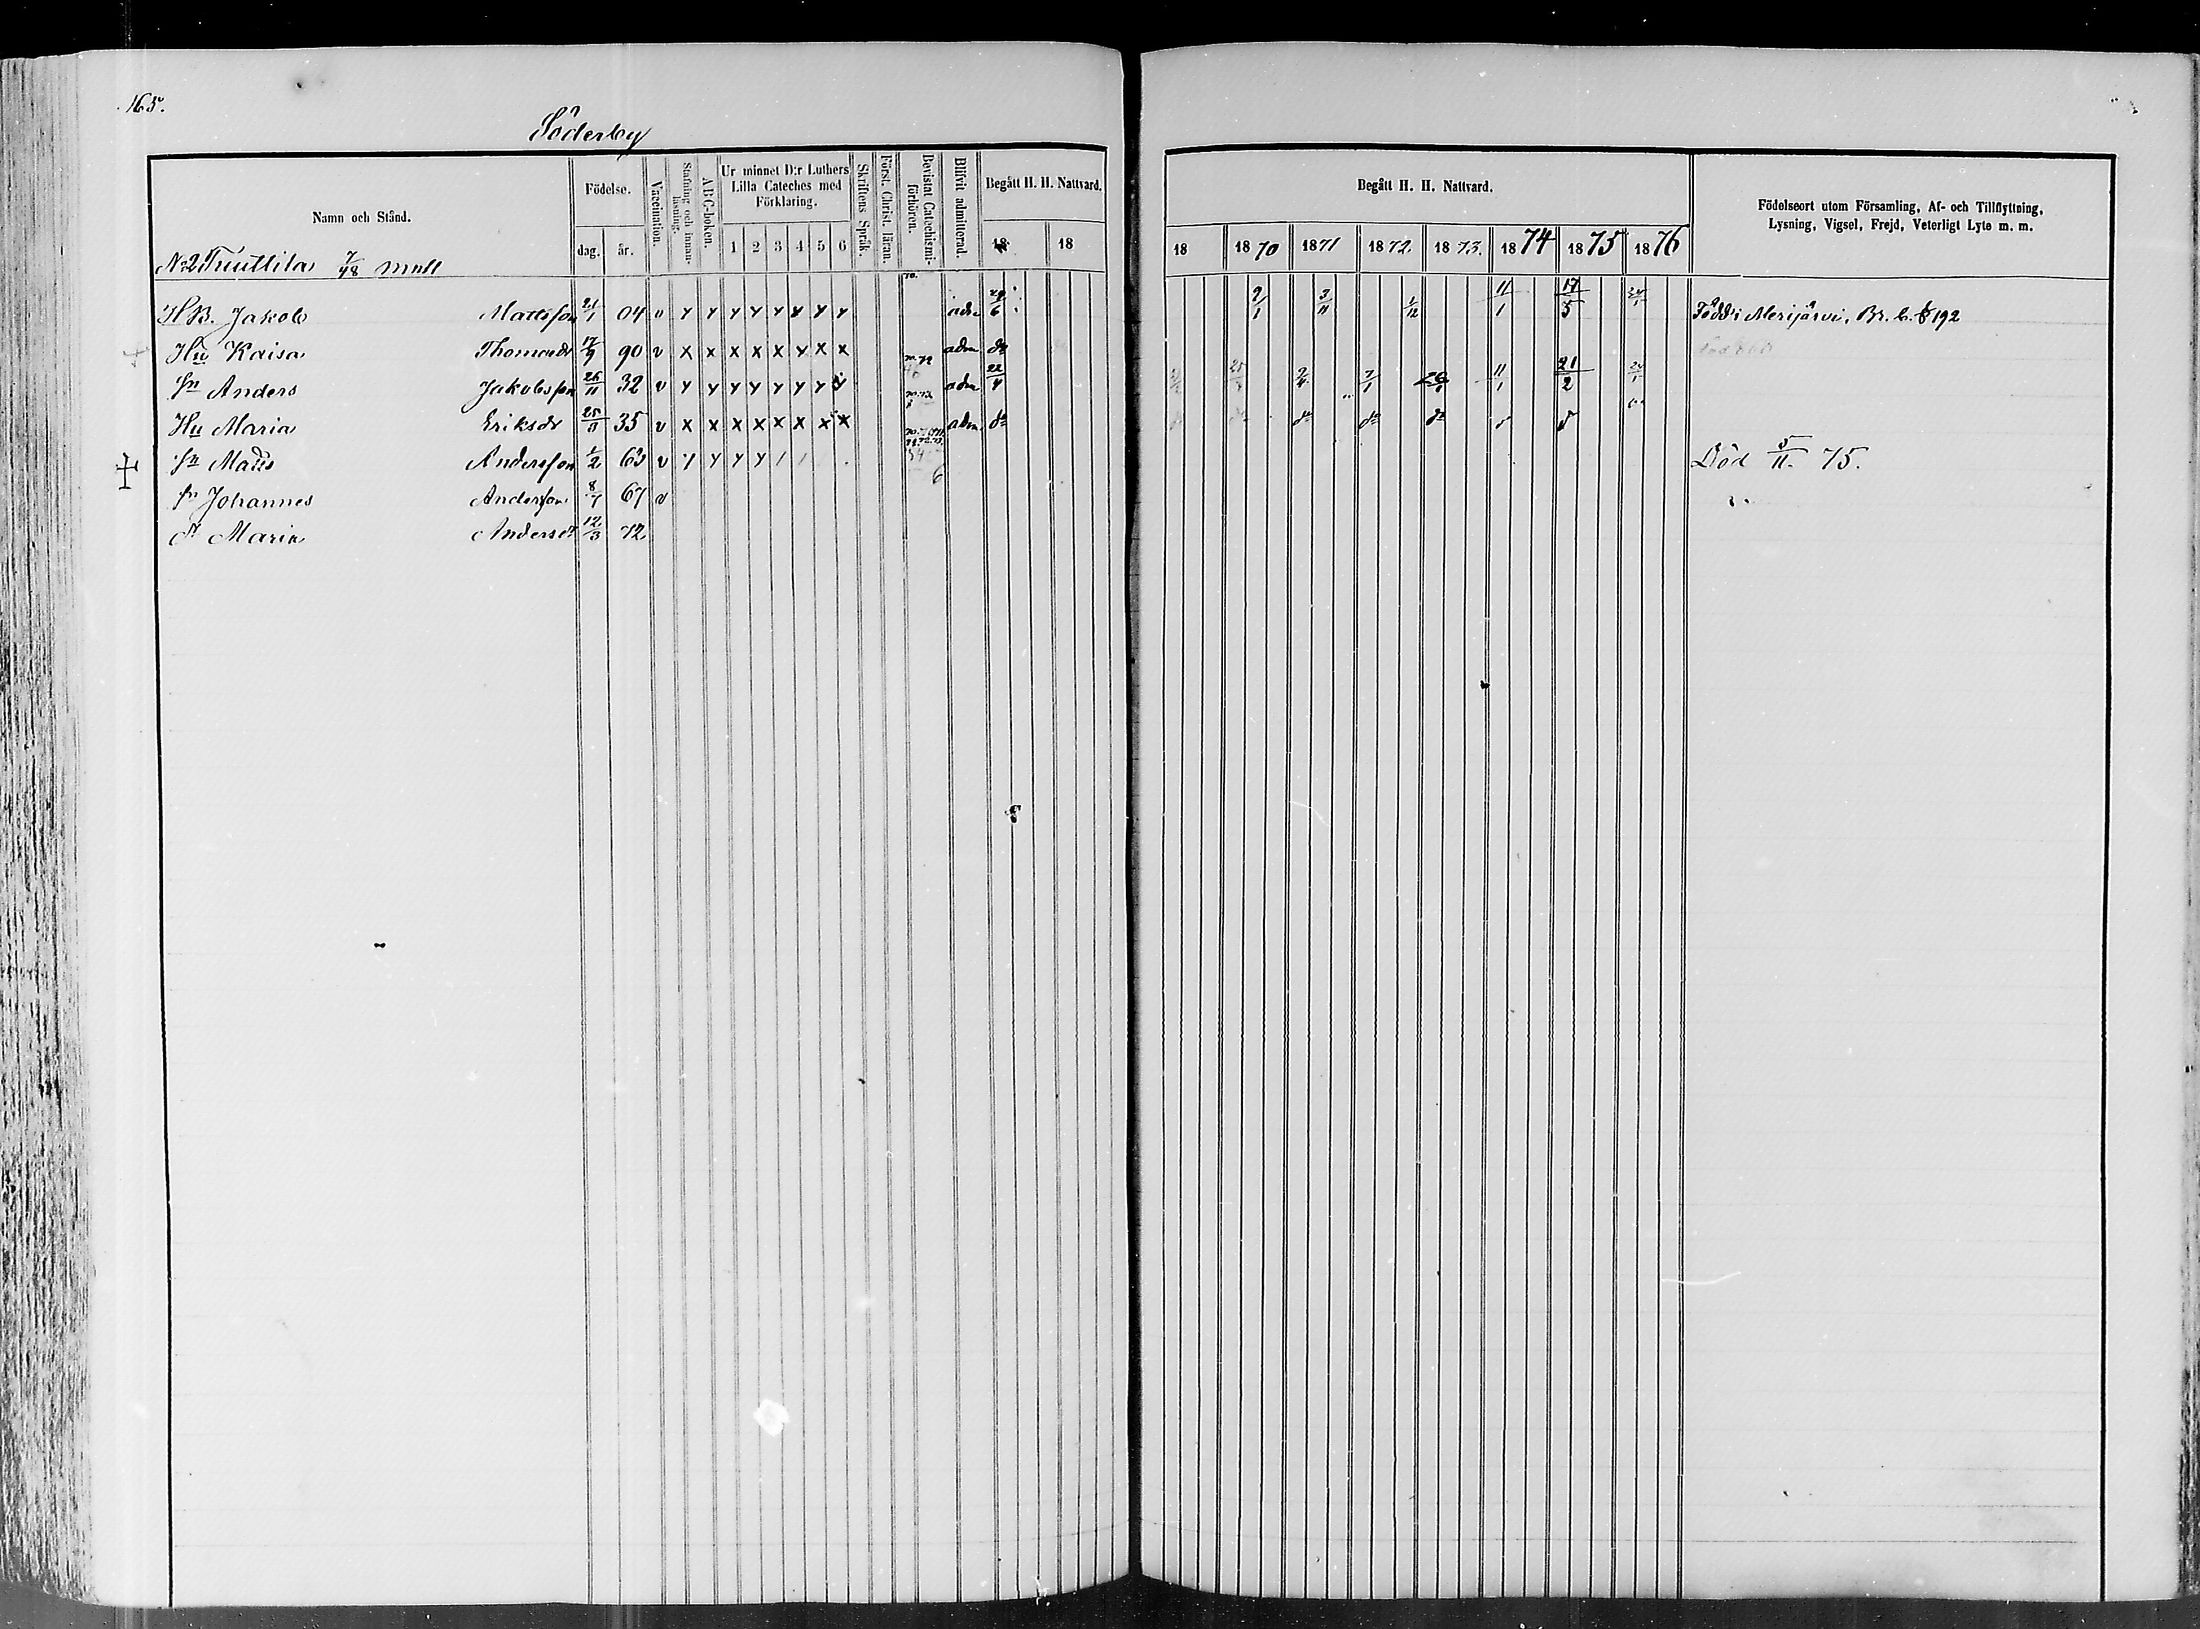 165.
Söderby
Namn och Stånd. Födelse. dag. år. Vaccination. Stafning och innan-läsning. ABC-boken. Ur minnet D:r Luthers Lilla Cateches med Förklaring. 1 2 3 4 5 6 Skriftens Språk. Först. Christ. läran. Bevistat Catechismi-förhören. Blifvit admitterad. Begått H. H. Nattvard. 18 18
Begått H. H. Nattvard. 18 1870 1871 1872. 1873. 1874 1875 1876 Födelseort utom Församling, Af- och Tillflyttning, Lysning, Vigsel, Frejd, Veterligt Lyte m. m.
No 2 Tuuttila 7/48 mtl
HB. Jakob Mattsson 21/1 04 v y y y y y y y y adm 29/6 2/1 3/11 1/12 11/1 17/5 Född i Merijärvi, Br. b. 192
Hu Kaisa Thomasdr 17/9 90 v x x x x x y x x adm do
Sn Anders Jakobsson 26/11 32 v y y y y y y y y adm 22/4 2/4 7/1 11/1 21/2
Hu Maria Eriksdr 25/11 35 v x x x x x x x x adm do do do do
Sn Matts Andersson 1/2 63 v y y y y / / Död 5/11. 75.
Sn Johannes Andersson 8/7 67 v
Dr Maria Andersdr 12/3 72